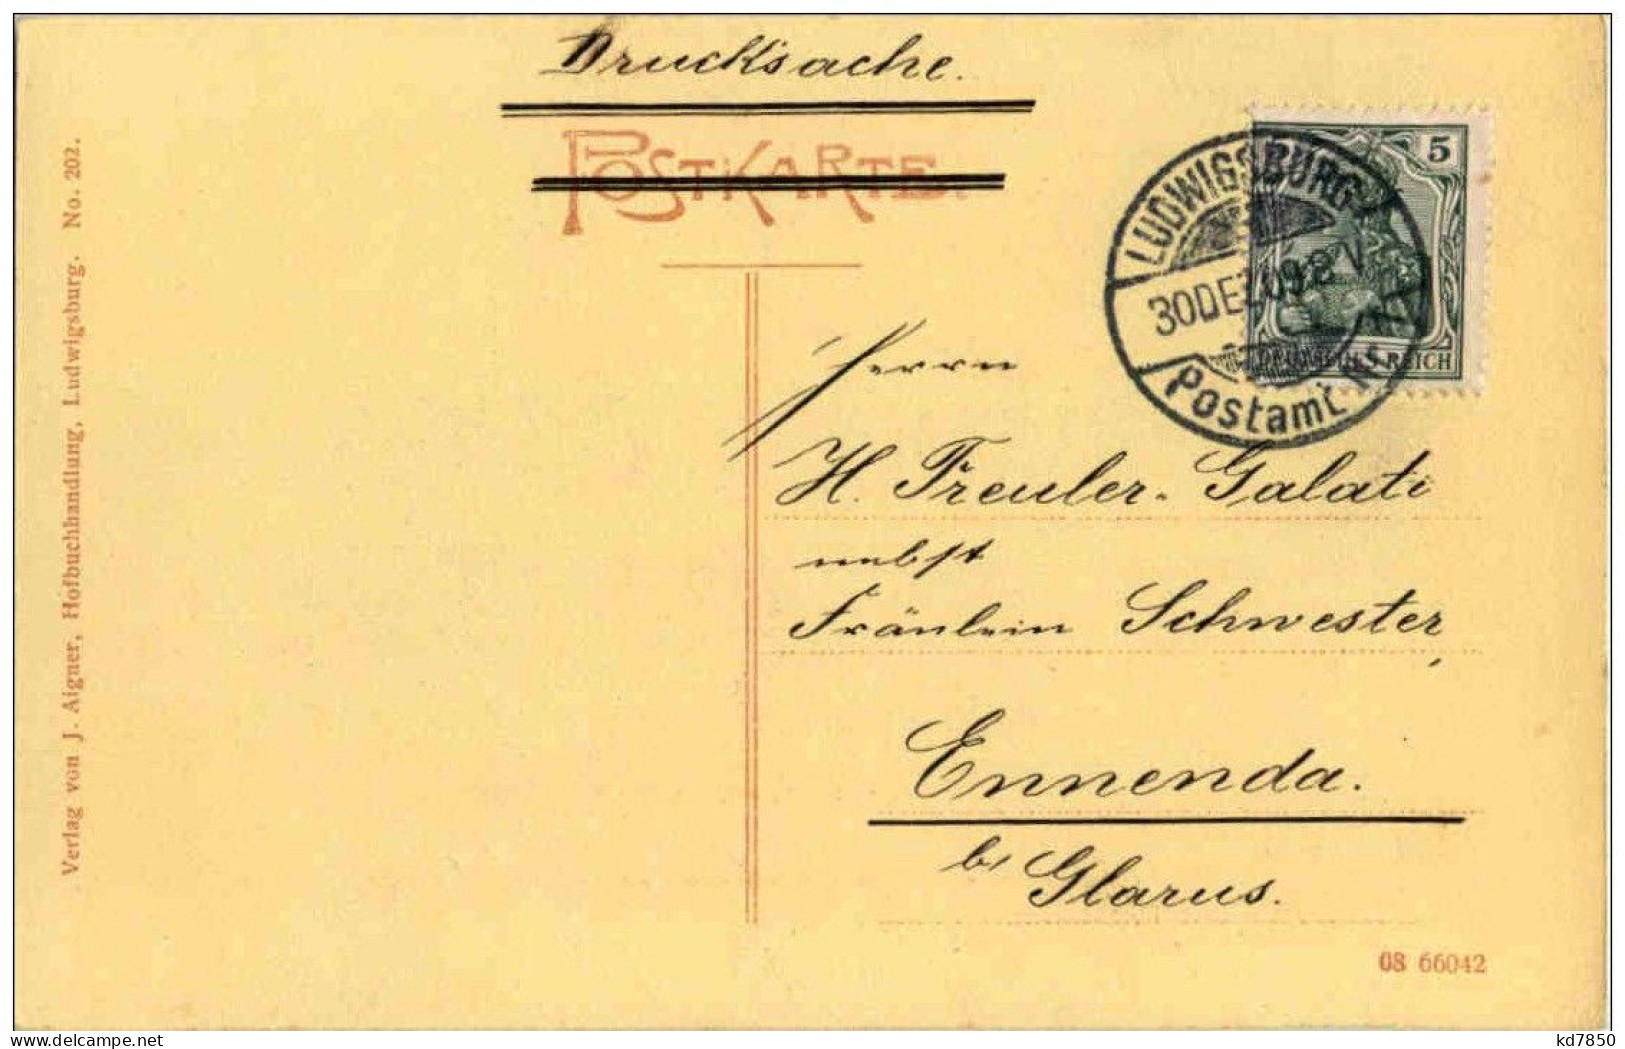 Drucksache.
POSTKARTE.
5
LUDWIGSBURG
30DEZ.09.8-9V.
DEUTSCHES REICH
Postamt
Herrn
H. Freuler-Galati
nebst
Fräulein Schwester,
Ennenda.
bei Glarus.
08 66042
Verlag von J. Aigner, Hofbuchhandlung, Ludwigsburg. No. 202.
delcampe.net
kd7850